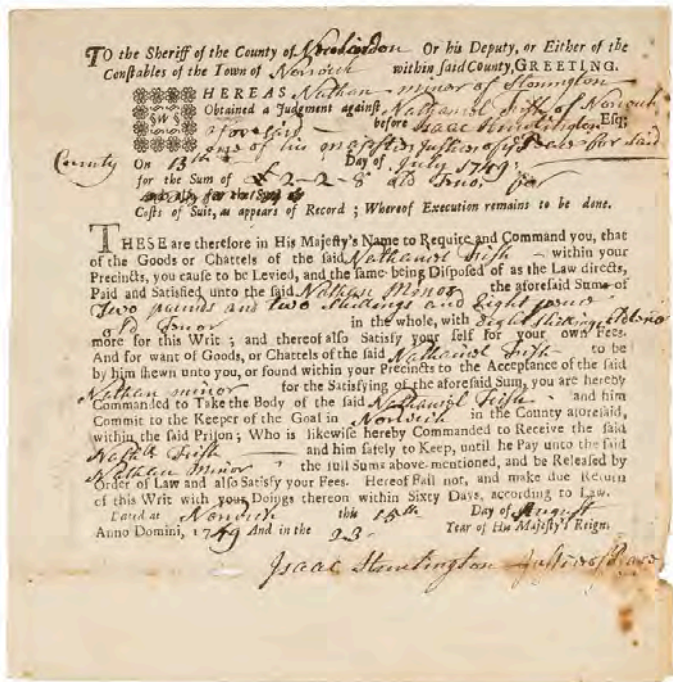 TO the Sheriff of the County of Newlondon Or his Deputy, or Either of the
Constables of the Town of Norwich within said County, GREETING.
WHEREAS Nathan minor of Stonington
Obtained a Judgment against Nathaniel Frish of Norwich
aforesaid before Isaac Huntington Esq;
one of his majesties Justices of Peace for said
County On 13th Day of July 1749:
for the Sum of £ 2-2-8 old Teno. for
Costs of Suit, as appears of Record ; Whereof Execution remains to be done.
THESE are therefore in His Majesty's Name to Require and Command you, that
of the Goods or Chattels of the said Nathaniel Frish within your
Precincts, you cause to be Levied, and the same being Disposed of as the Law directs,
Paid and Satisfied unto the said Nathan Minor the aforesaid Sums of
Two pounds and two shillings and Eight pence
old Tenor in the whole, with Eight shillings old teno
more for this Writ ; and thereof also Satisfy your self for your own Fees.
And for want of Goods, or Chattels of the said Nathaniel Frish to be
by him shewn unto you, or found within your Precincts to the Acceptance of the said
Nathan minor for the Satisfying of the aforesaid Sum, you are hereby
Commanded to Take the Body of the said Nathaniel Frish and him
Commit to the Keeper of the Goal in Norwich in the County aforesaid,
within the said Prison; Who is likewise hereby Commanded to Receive the said
Nathll Frish and him safely to Keep, until he Pay unto the said
Nathan Minor the full Sums above-mentioned, and be Released by
Order of Law and also Satisfy your Fees. Hereof Fail not, and make due Return
of this Writ with your Doings thereon within Sixty Days, according to Law.
Dated at Norwich this 15th Day of August
Anno Domini, 1749 And in the 23 Year of His Majesty's Reign.
Isaac Huntington Justice of Peace